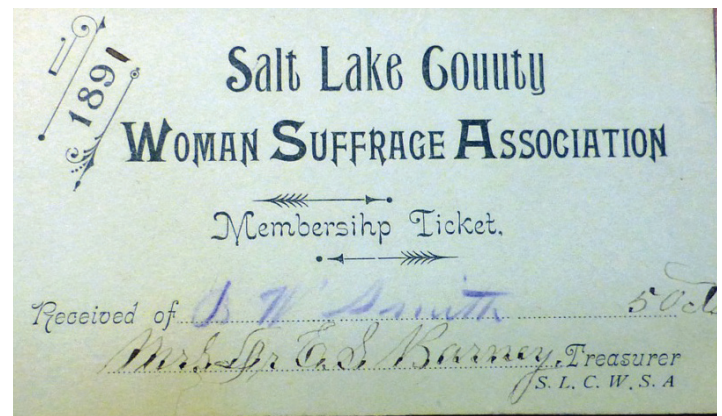 1891
Salt Lake Gouuty
WOMAN SUFFRAGE ASSOCIATION
Membersihp Ticket.
Received of B W Smith 50 cts
Mrs Dr E. S. Barney, Treasurer
S. L. C. W. S. A